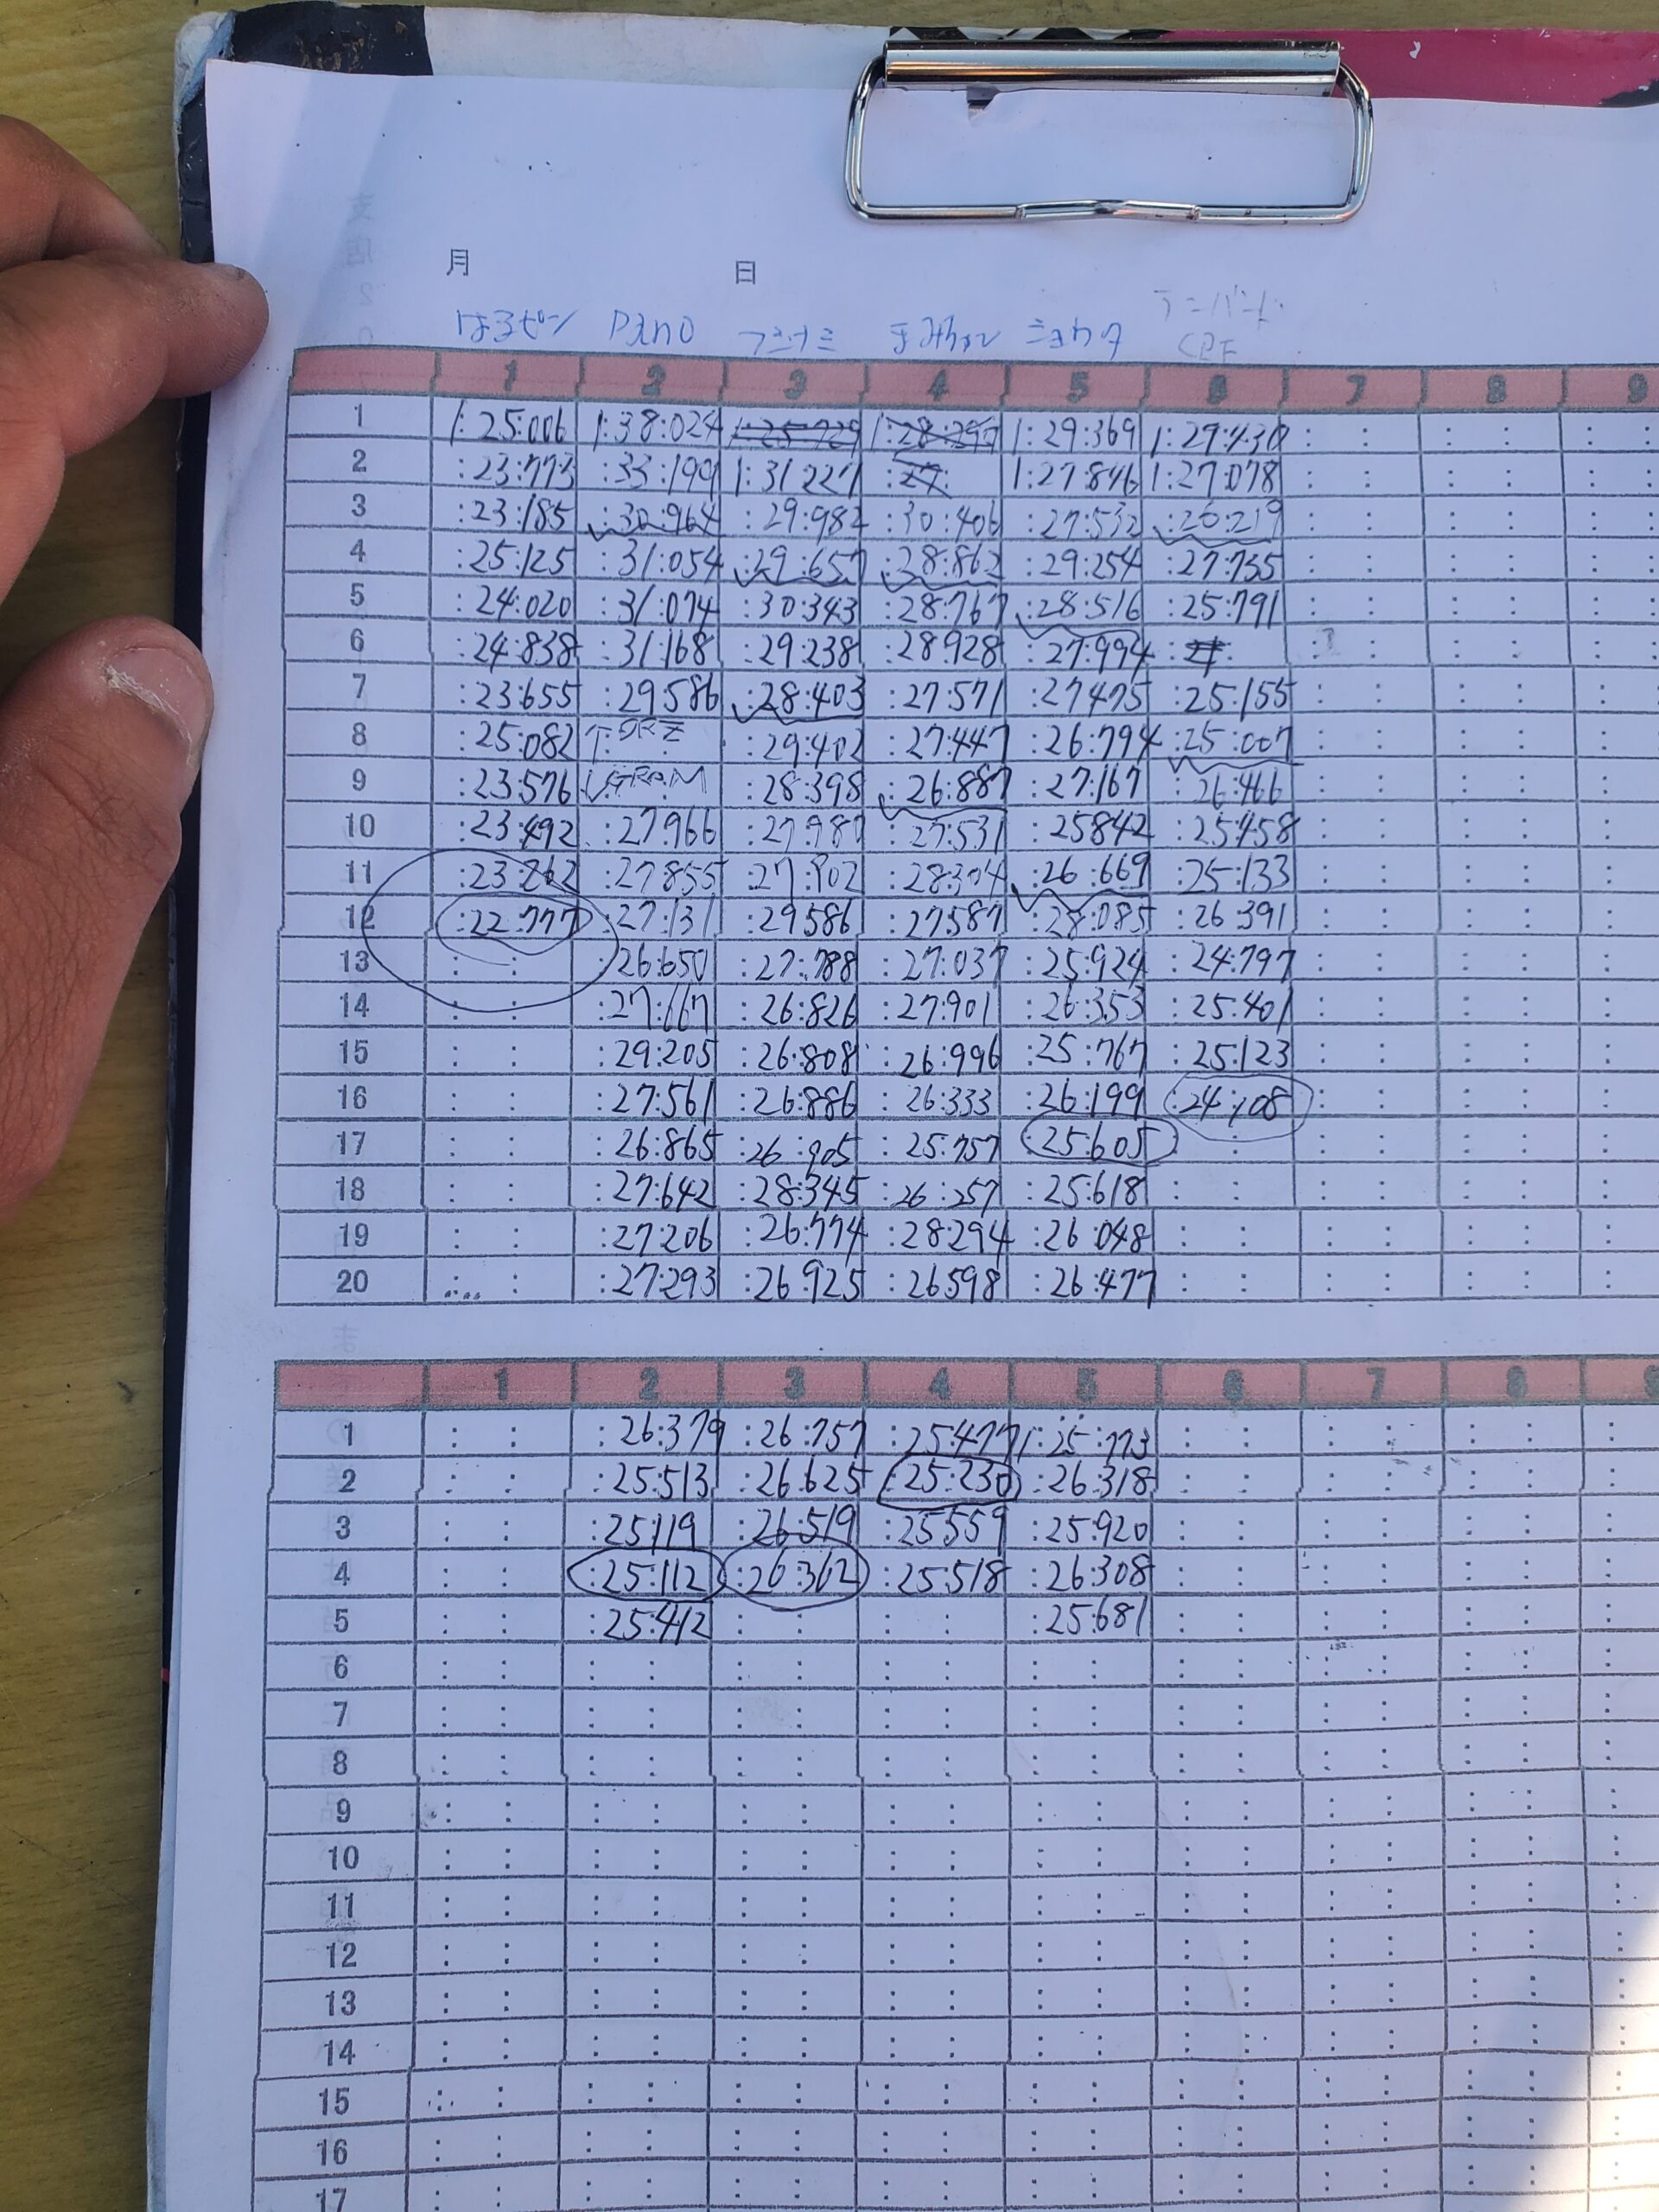 月 日
はるピン
1 2 3 4 5 6 7 8 9
1 1:25:006 1:38:024 1:25:729 1:28:297 1:29:369 1:29:430 : : : : : :
2 :23:773 :33:199 1:31 227 :27: 1:27:846 1:27:078 : : : : : :
3 :23:185 :30:964 :29:982 :30:406 :27:532 :26:219 : : : : : :
4 :25:125 :31:054 :29:657 :28:862 :29:254 :27:735 : : : : : :
5 :24:020 :31:074 :30:343 :28:767 :28:516 :25:791 : : : : : :
6 :24:838 :31:168 :29:238 :28:928 :27:994 : : : : : :
7 :23:655 :29:586 :28:403 :27:571 :27:475 :25:155 : : : : : :
8 :25:082 :29:402 :27:447 :26:794 :25:007 : : : : : :
9 :23:576 :28:398 :26:887 :27:167 :26:466 : : : : : :
10 :23:492 :27:966 :27:987 :27:531 :25842 :25:458 : : : : : :
11 :23:262 :27855 :27:902 :28:304 :26:669 :25:133 : : : : : :
12 :22:777 :27:131 :29586 :27:587 :28:085 :26:391 : : : : : :
13 : : :26:650 :27:788 :27:037 :25:924 :24:797 : : : : : :
14 : : :27:667 :26:826 :27:901 :26:353 :25:401 : : : : : :
15 : : :29:205 :26:808 :26:996 :25:767 :25:123 : : : : : :
16 : : :27:561 :26:886 :26:333 :26:199 :24:108 : : : : : :
17 : : :26:865 :26:905 :25:757 :25:605 : : : : : : : :
18 : : :27:642 :28:345 :26:257 :25:618 : : : : : : : :
19 : : :27:206 :26:774 :28:294 :26:048 : : : : : : : :
20 : : :27:293 :26:925 :26:598 :26:477 : : : : : : : :
1 2 3 4 5 6 7 8 9
1 : : :26:379 :26:757 :25:477 1:25:773 : : : : : : : :
2 : : :25:513 :26:625 :25:230 :26:318 : : : : : : : :
3 : : :25:119 :26:519 :25:559 :25:920 : : : : : : : :
4 : : :25:112 :26:362 :25:518 :26:308 : : : : : : : :
5 : : :25:412 : : : : :25:681 : : : : : : : :
6 : : : : : : : : : : : : : : : : : :
7 : : : : : : : : : : : : : : : : : :
8 : : : : : : : : : : : : : : : : : :
9 : : : : : : : : : : : : : : : : : :
10 : : : : : : : : : : : : : : : : : :
11 : : : : : : : : : : : : : : : : : :
12 : : : : : : : : : : : : : : : : : :
13 : : : : : : : : : : : : : : : : : :
14 : : : : : : : : : : : : : : : : : :
15 : : : : : : : : : : : : : : : : : :
16 : : : : : : : : : : : : : : : : : :
17 : : : : : : : : : : : : : : : : : :